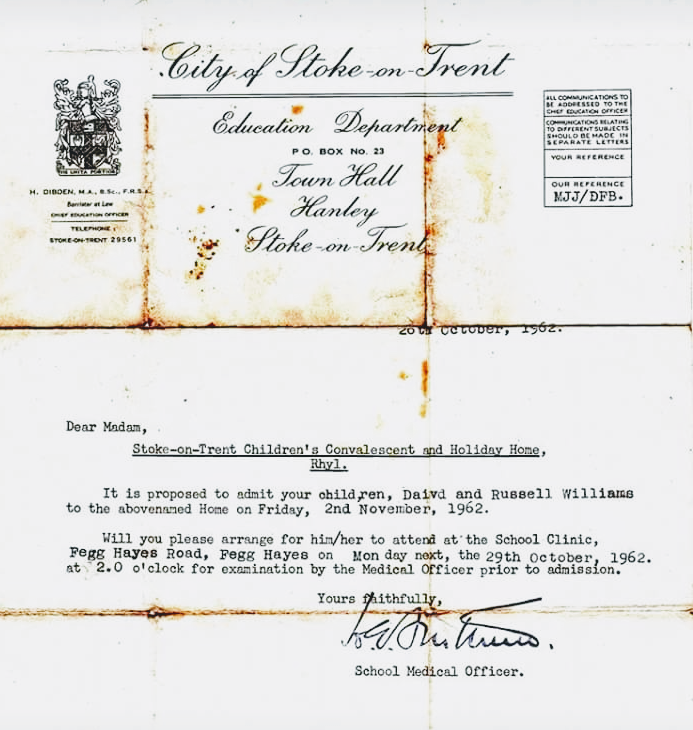 City of Stoke-on-Trent
Education Department
P.O. BOX No. 23
Town Hall
Hanley
Stoke-on-Trent
H. DIBDEN, M.A., B.Sc., F.R.S.A.
Barrister at Law
CHIEF EDUCATION OFFICER
TELEPHONE :
STOKE-ON-TRENT 29561
ALL COMMUNICATIONS TO
BE ADDRESSED TO THE
CHIEF EDUCATION OFFICER
COMMUNICATIONS RELATING
TO DIFFERENT SUBJECTS
SHOULD BE MADE IN
SEPARATE LETTERS
YOUR REFERENCE
OUR REFERENCE
MJJ/DFB.
October, 1962.
Dear Madam,
Stoke-on-Trent Children's Convalescent and Holiday Home,
Rhyl.
It is proposed to admit your children, Daivd and Russell Williams
to the abovenamed Home on Friday, 2nd November, 1962.
Will you please arrange for him/her to attend at the School Clinic,
Fegg Hayes Road, Fegg Hayes on Monday next, the 29th October, 1962.
at 2.0 o'clock for examination by the Medical Officer prior to admission.
Yours faithfully,
School Medical Officer.